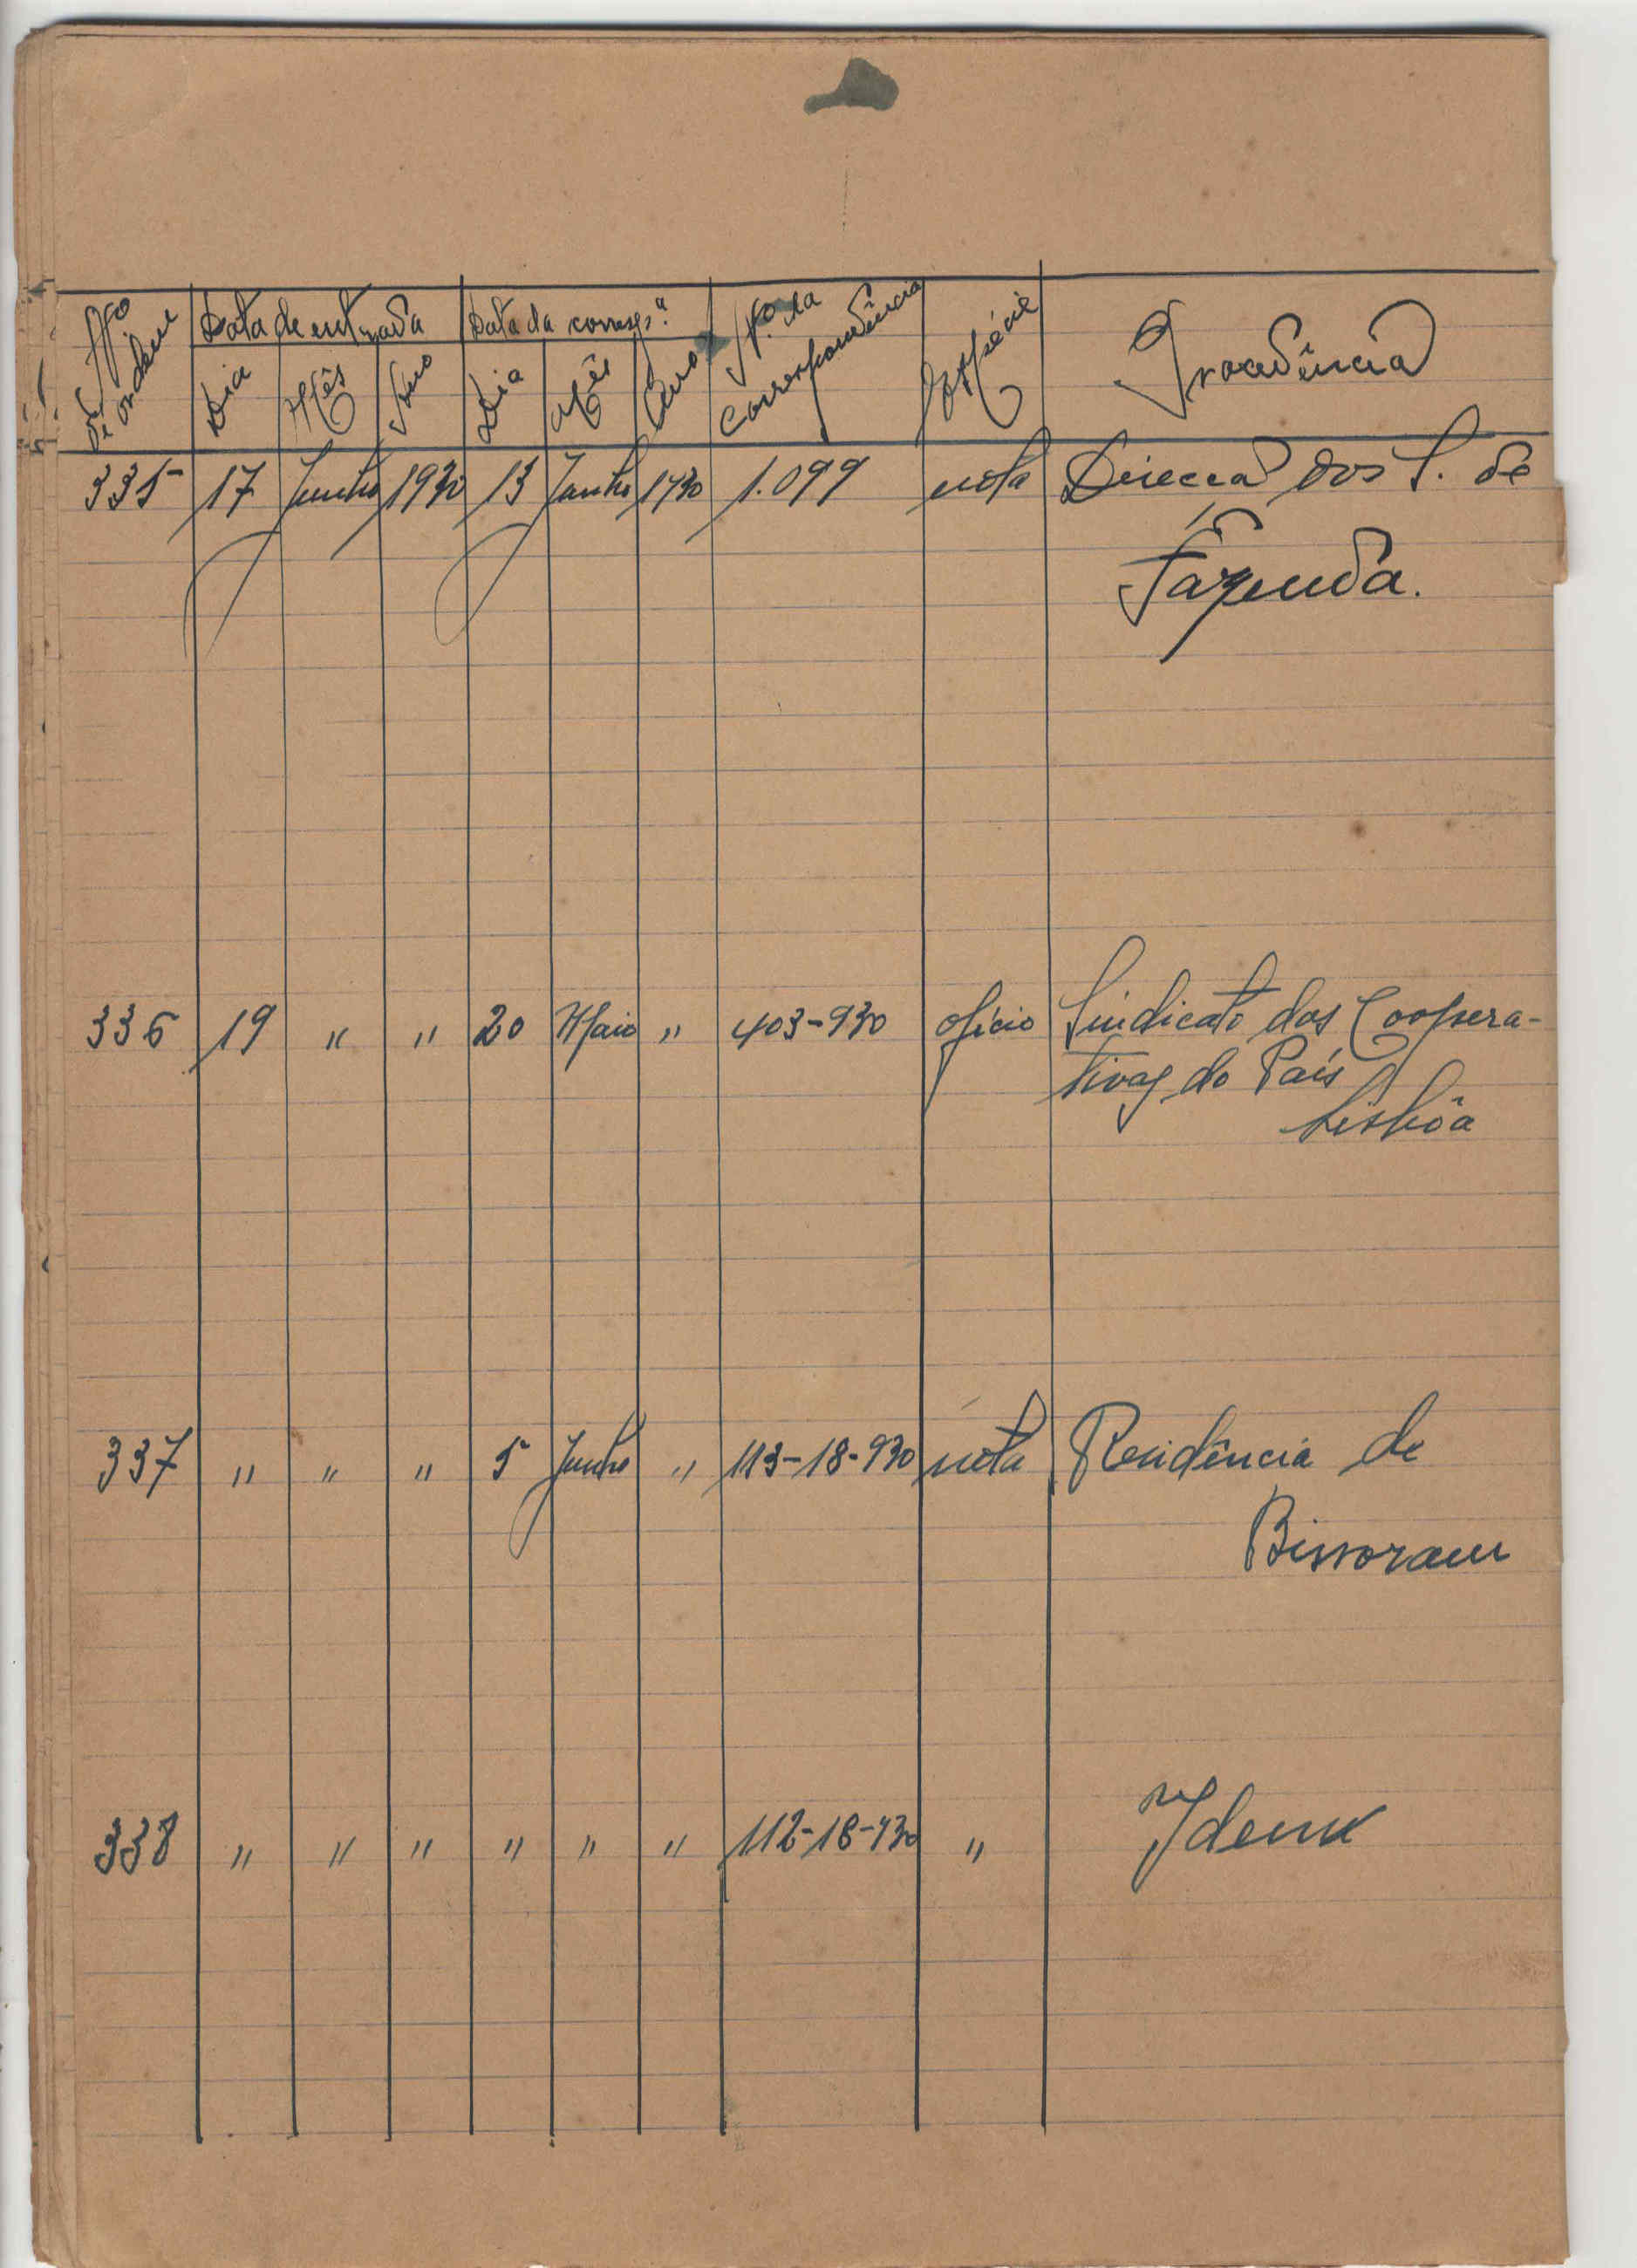 Nº de ordem Data de entrada Data da corresp.ª Nº. da Correspondência Espécie Procedência
Dia Mês Ano Dia Mês Ano
335 17 Junho 1930 13 Junho 1930 1.099 nota Direcção dos S. de
Fazenda.
336 19 " " 20 Maio " 403-930 ofício Sindicato das Coopera-
tivas do País
Lisbôa
337 " " " 5 Junho " 113-18-930 nota Residência de
Bissoram
338 " " " " " " 112-18-930 " Idem